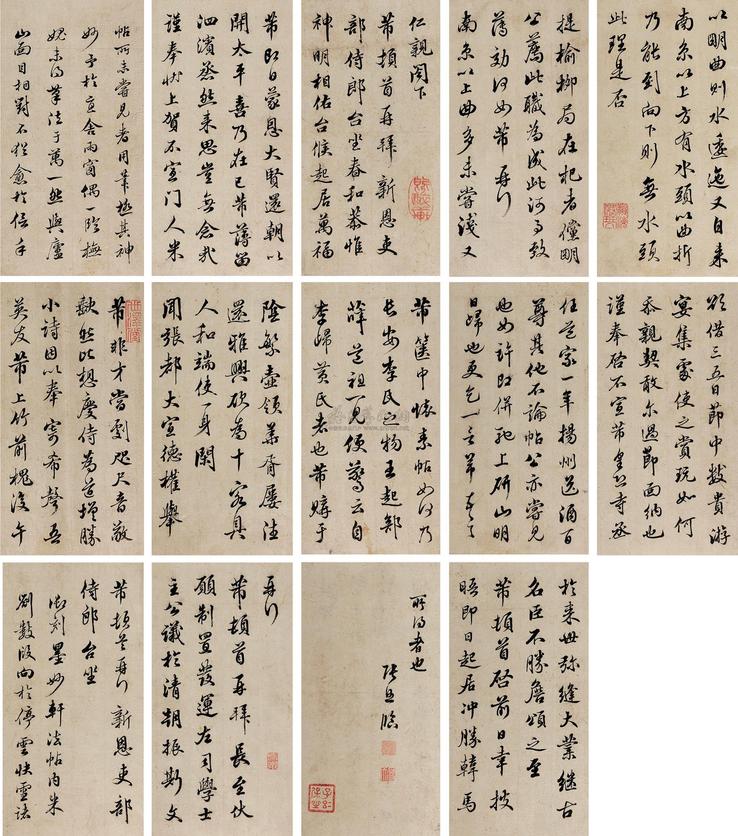 帖所未嘗見者用筆極其神
妙予於直舍雨窗偶臨撫
媿未得筆法于萬一然與廬
山面目相對不猶愈於信手
芾即日蒙恩大賢還朝以
開太平喜乃在己芾薄留
泗濱蒸然来思豈無念哉
謹奉狀上賀不宣門人米
仁親閣下
芾頓首再拜新恩吏
部侍郎台坐春和恭惟
神明相佑台候起居萬福
提榆柳局在杞者儻明
公薦此職為成此河事致
薄効何如芾再行
南京以上曲多未嘗淺又
以明曲則水遠迤又自来
南京以上方有水頭以曲折
乃能到向下則無水頭
此理是否
芾非才當劇咫尺音敬
缺然比想慶侍為道增勝
小詩因以奉寄希聲吾
英友芾上竹前槐後午
陰繁壺領華胥屢往
還雅興欲為十客具
人和端使一身閑
聞張都大宣德權舉
芾篋中懷素帖如何乃
長安李氏之物王起部
薛道祖一見便驚云自
李歸黃氏者也芾購于
任道家一年揚州送酒百
尊其他不論帖公亦嘗見
也如許即併馳上研山明
日歸也更乞一言芾頓首
欲借三五日節中數貴游
宴集處使之賞玩如何
忝親契敢爾過節面納也
謹奉啓不宣芾皇恐寺丞
芾頓首再行新恩吏部
侍郎台坐
御刻墨妙軒法帖内米
刻數段向於停雲快雪諸
再行
芾頓首再拜長至伏
願制置發運左司學士
主公議於清朝振斯文
所得者也
張照臨
於来世弥縫大業継古
名臣不勝詹頌之至
芾頓首啓前日幸披
晤即日起居冲勝韓馬